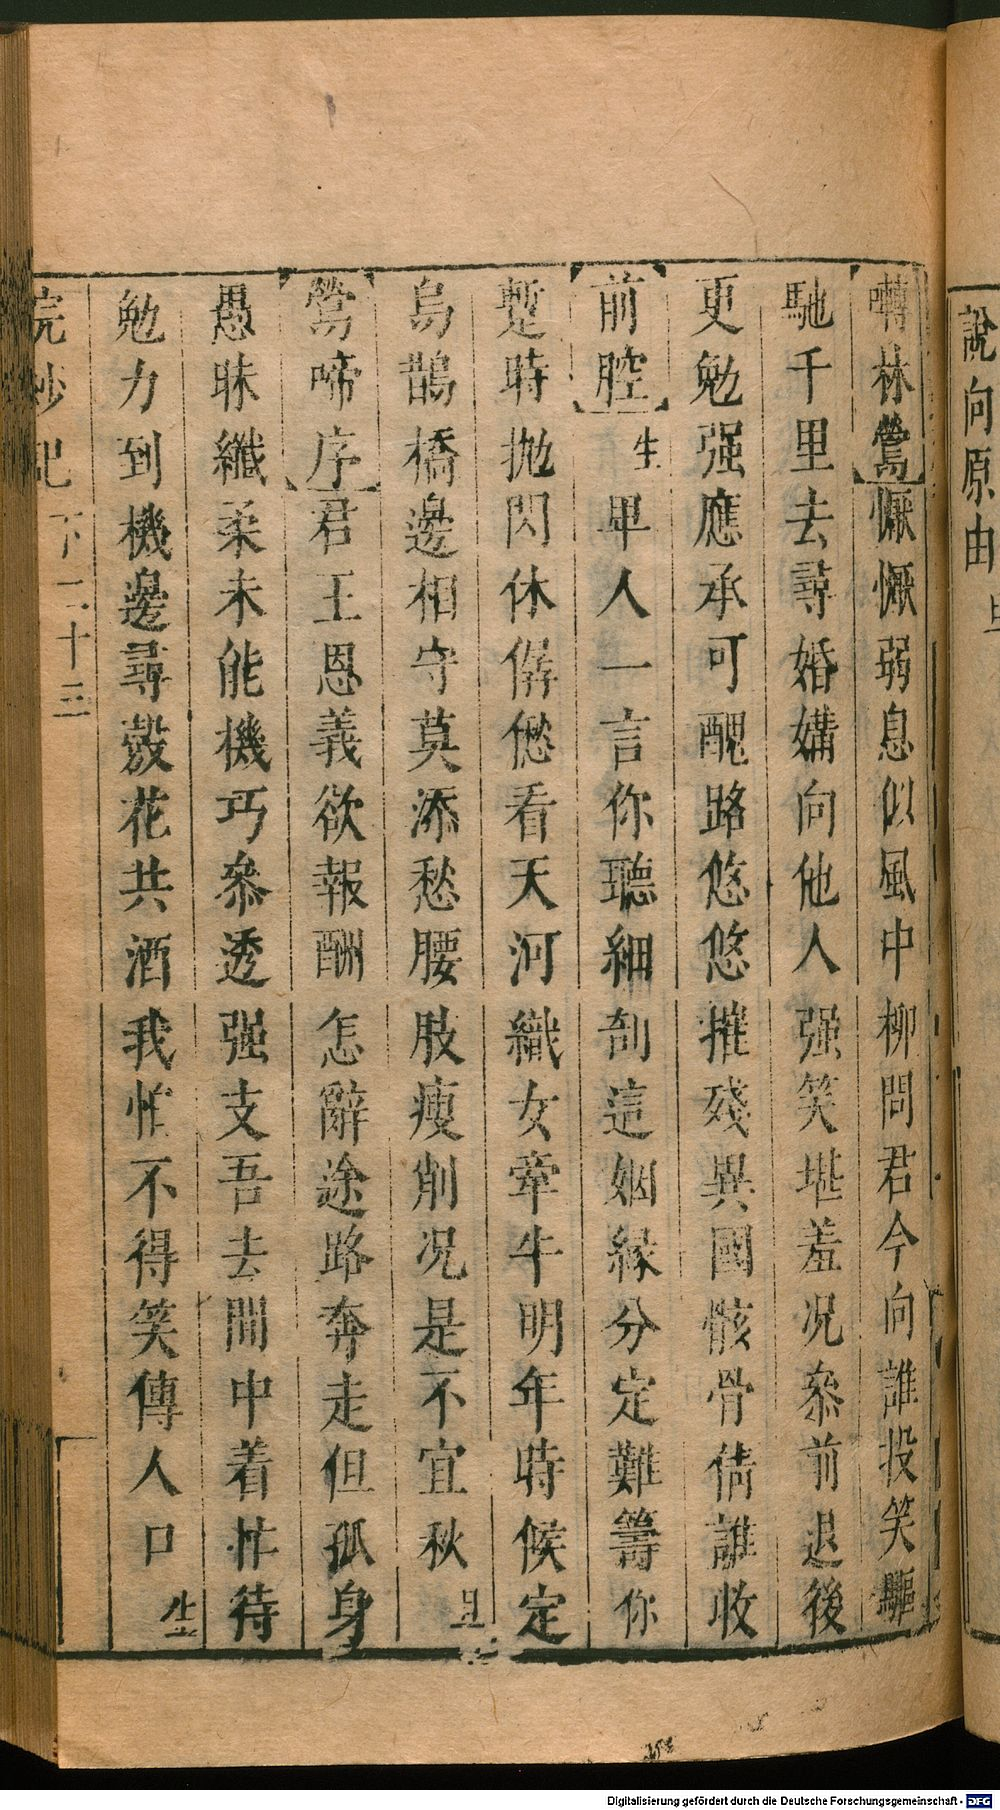 說向原由 旦
囀林鶯 懨懨弱息似風中柳問君今向誰投笑驅
馳千里去尋婚媾向他人强笑堪羞况叅前退後
更勉强應承可醜路悠悠摧殘異國骸骨倩誰收
前腔 生 卑人一言你聽細剖這姻緣分定難籌你
暫時拋閃休僝僽看天河織女牽牛明年時候定
烏鵲橋邊相守莫添愁腰肢瘦削况是不宜秋 旦
鶯啼序 君王恩義欲報酬怎辭途路奔走但孤身
愚昧纖柔未能機巧叅透强支吾去間中着忙待
勉力到機邊尋彀花共酒我怕不得笑傳人口 生
浣紗記 下 二十三
Digitalisierung gefördert durch die Deutsche Forschungsgemeinschaft - DFG